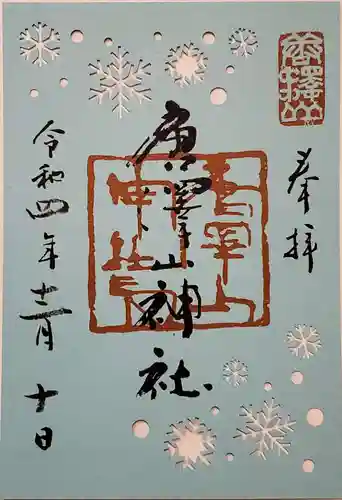 奉拝
唐澤山
唐澤山神社
唐澤山神社
令和四年十二月十日